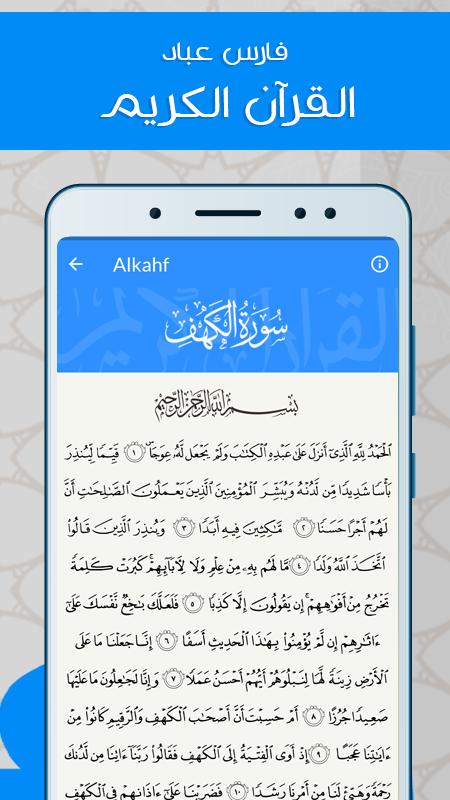 فارس عباد
القرآن الكريم
Alkahf
سُورَةُ الكَهْفِ
بِسْمِ اللَّهِ الرَّحْمَٰنِ الرَّحِيمِ
الْحَمْدُ لِلَّهِ الَّذِي أَنزَلَ عَلَىٰ عَبْدِهِ الْكِتَابَ وَلَمْ يَجْعَل لَّهُ عِوَجًا ۜ ١ قَيِّمًا لِّيُنذِرَ
بَأْسًا شَدِيدًا مِّن لَّدُنْهُ وَيُبَشِّرَ الْمُؤْمِنِينَ الَّذِينَ يَعْمَلُونَ الصَّالِحَاتِ أَنَّ
لَهُمْ أَجْرًا حَسَنًا ٢ مَّاكِثِينَ فِيهِ أَبَدًا ٣ وَيُنذِرَ الَّذِينَ قَالُوا
اتَّخَذَ اللَّهُ وَلَدًا ٤ مَّا لَهُم بِهِ مِنْ عِلْمٍ وَلَا لِآبَائِهِمْ ۚ كَبُرَتْ كَلِمَةً
تَخْرُجُ مِنْ أَفْوَاهِهِمْ ۚ إِن يَقُولُونَ إِلَّا كَذِبًا ٥ فَلَعَلَّكَ بَاخِعٌ نَّفْسَكَ عَلَىٰ
ءَاثَارِهِمْ إِن لَّمْ يُؤْمِنُوا بِهَٰذَا الْحَدِيثِ أَسَفًا ٦ إِنَّا جَعَلْنَا مَا عَلَى
الْأَرْضِ زِينَةً لَّهَا لِنَبْلُوَهُمْ أَيُّهُمْ أَحْسَنُ عَمَلًا ٧ وَإِنَّا لَجَاعِلُونَ مَا عَلَيْهَا
صَعِيدًا جُرُزًا ٨ أَمْ حَسِبْتَ أَنَّ أَصْحَابَ الْكَهْفِ وَالرَّقِيمِ كَانُوا مِنْ
ءَايَاتِنَا عَجَبًا ٩ إِذْ أَوَى الْفِتْيَةُ إِلَى الْكَهْفِ فَقَالُوا رَبَّنَا ءَاتِنَا مِن لَّدُنكَ
رَحْمَةً وَهَيِّئْ لَنَا مِنْ أَمْرِنَا رَشَدًا ١٠ فَضَرَبْنَا عَلَىٰ ءَاذَانِهِمْ فِي الْكَهْفِ